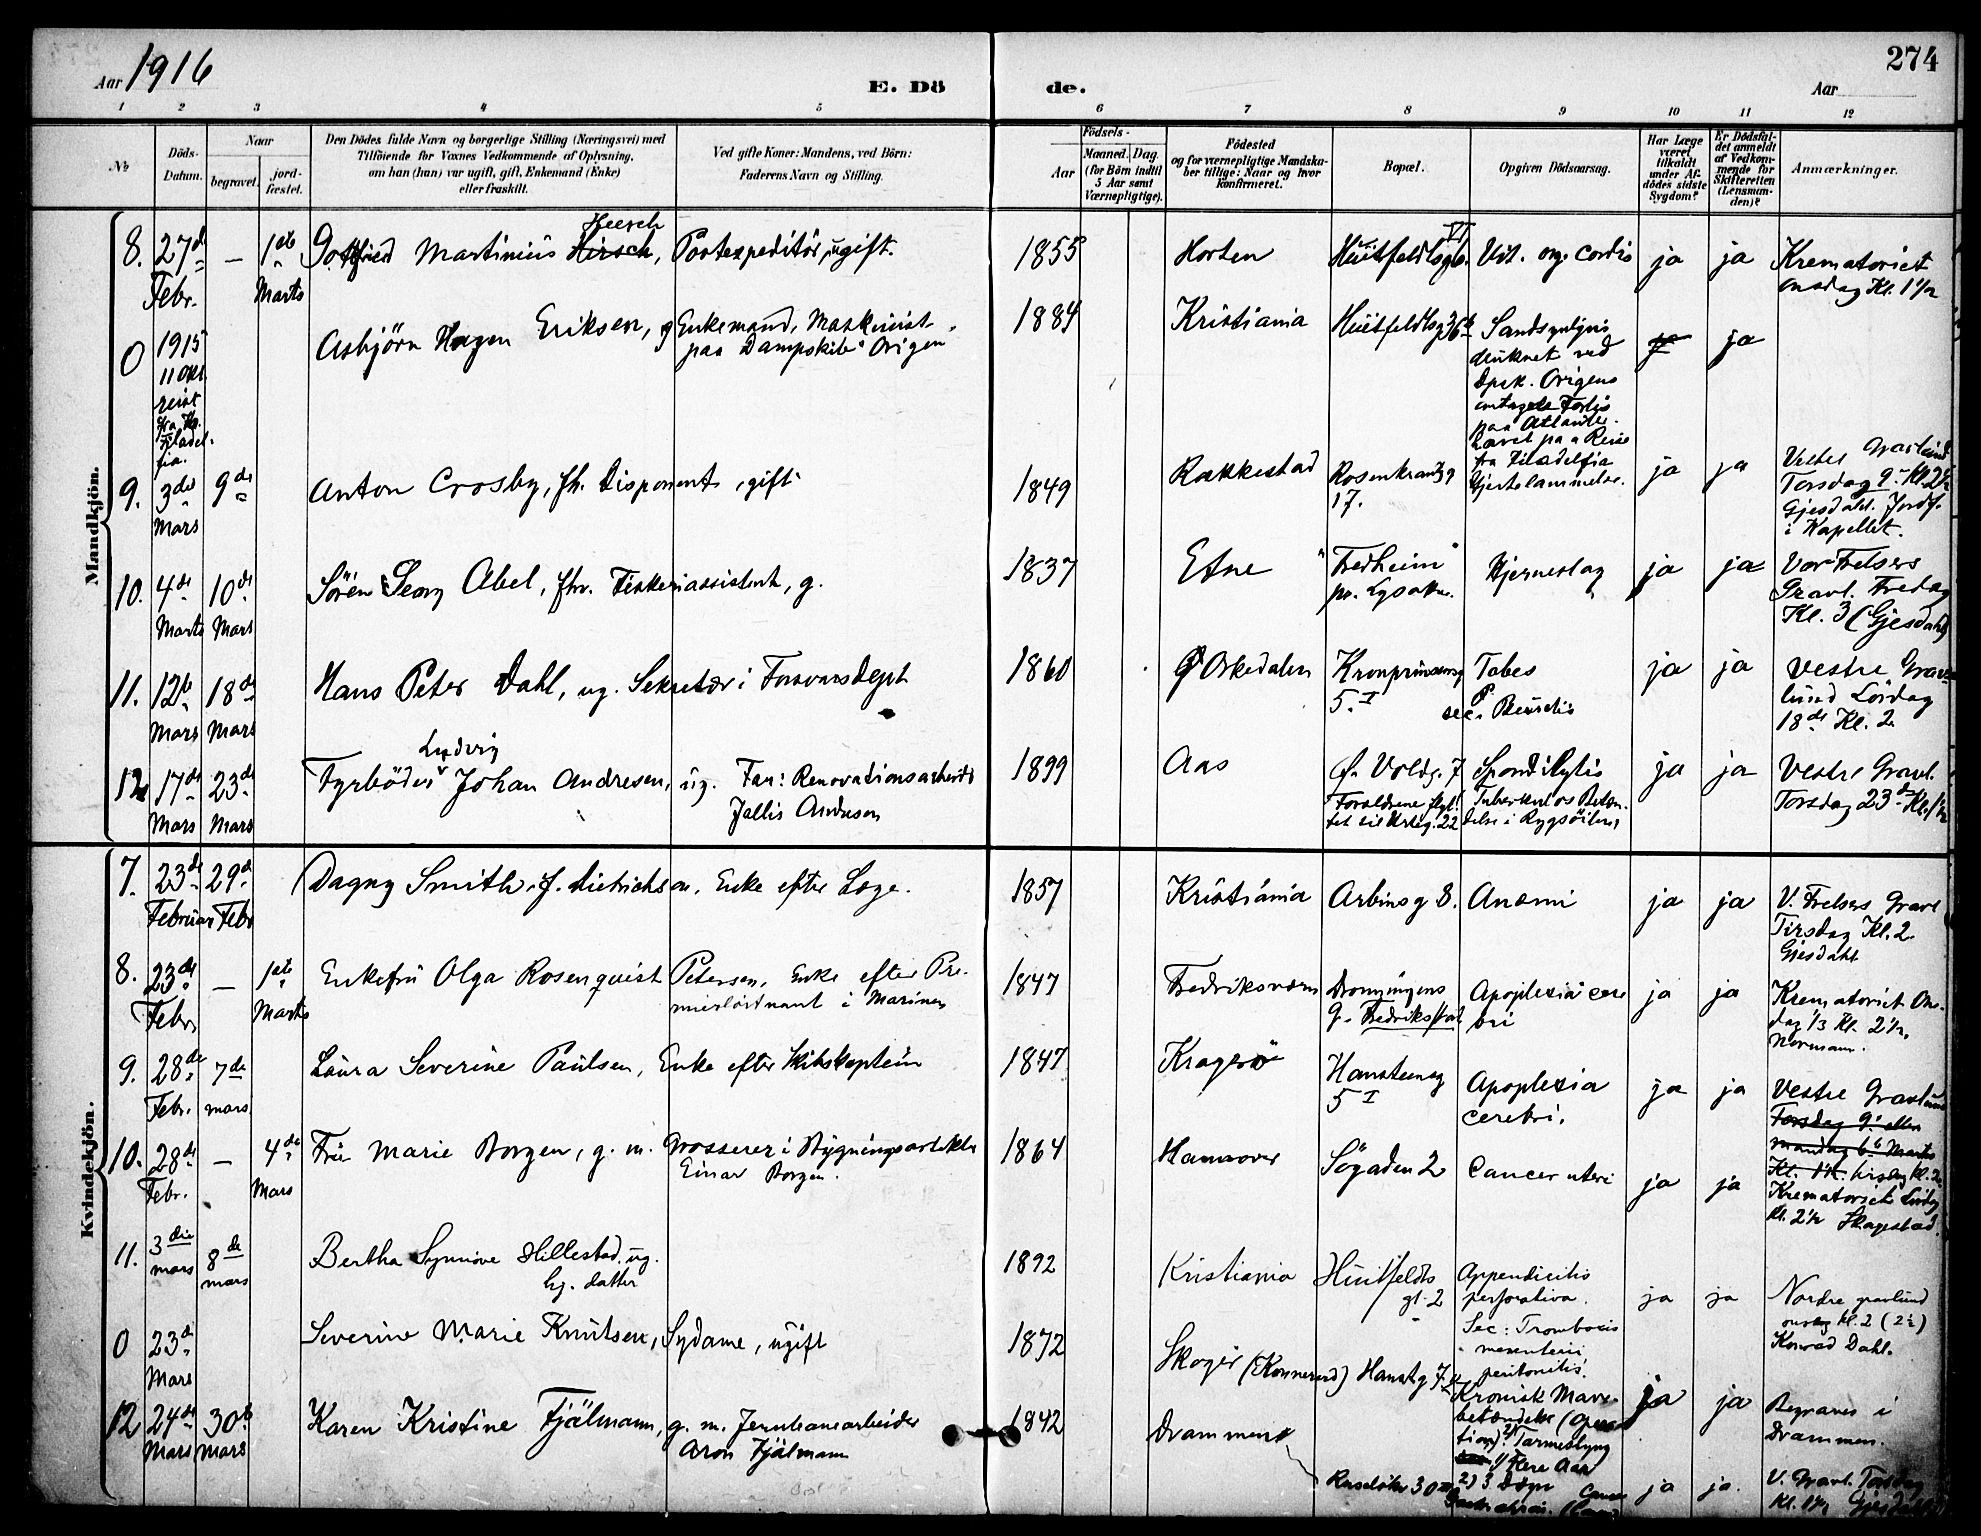 Aar 1916
E. Dö
de.
Aar
274
1 2 3 4 5 6 7 8 9 10 11 12
No
Döds-
Datum.
Naar
begravet.
jord-
fæstet.
Den Dödes fulde Navn og borgerlige Stilling (Næringsvei) med
Tilföiende for Voxnes Vedkommende af Oplysning,
om han (hun) var ugift, gift, Enkemand (Enke)
eller fraskilt.
Ved gifte Koner: Mandens, ved Börn:
Faderens Navn og Stilling.
Födsels-
Aar
Maaned. Dag.
(for Börn indtil
5 Aar samt
Værnepligtige).
Födested
og for værnepligtige Mandska-
ber tillige: Naar og hvor
konfirmeret.
Bopæl.
Opgiven Dödsaarsag.
Har Læge
været
tilkaldt
under Af-
dödes sidste
Sygdom?
Er Dödsfal-
det anmeldt
af Vedkom-
mende for
Skifteretten
(Lensman-
den)?
Anmærkninger.
Mandkjön.
8. 27d Febr. — 1ste Marts Gottfried Martinius Hirsch Heesch, Postexpeditör, ugift. 1855 Horten Huitfeldtsg 6. VI Vit. org. cordis ja ja Krematoriet
onsdag Kl. 1 1/2
0 1915 11 okt. reist fra Filadel-
fia. Asbjörn Hagen Eriksen, Enkemand, Maskinist
paa Dampskib "Origen" 1884 Kristiania Huitfeldtsg 36 Sandsynligvis
druknet ved
Dpsk. Origens
paa Atlanter-
havet paa Reise
fra Filadelfia ja ja
9. 3de Mars 9de Anton Crosby, fh. Disponent, gift 1849 Rakkestad Rosenkrantzg
17. Hjertelammelse. ja ja Vestre Gravlund
Torsdag 9- Kl. 2 1/2
Gjesdahl. Jordf.
i Kapellet.
10. 4de Marts 10de Mars Sören Georg Abel, fhv. Fiskeriassistent, g. 1837 Etne "Fredheim"
pr. Lysaker. Hjerneslag ja ja Vor Frelsers
Gravl. Fredag
Kl. 3 (Gjesdahl)
11. 12te Mars 18de Mars Hans Peter Dahl, ug. Sekretær i Forsvarsdept 1860 Orkedalen Kronprinsensg
5. I Tabes
sec. ja ja Vestre Grav-
lund Lördag
18de Kl. 2.
12. 17de Mars 23de Mars Fyrböder Ludvig Johan Andresen, ug. Far: Renovationsarbeider
Andresen 1899 Aas Ø. Voldg. 7
Foreldrene flyt-
tet til Urteg. 22 Spondilytis
Tuberkulös Beten-
delse i Rygsöilen, ja ja Vestre Gravl.
Torsdag 23de Kl. 1 1/2
Kvindekjön.
7. 23de Februar 29de Febr Dagny Smith, f. Dietrichson, Enke efter Læge. 1857 Kristiania Arbinsg 8. Anæmi ja ja V. Frelsers Gravl
Tirsdag Kl. 2
Gjesdahl
8. 23de Febr. — 1ste Marts Enkefru Olga Rosenquist Petersen, Enke efter Pre-
mierlöitnant i Marinen 1847 Fredriksværn Dronningens
g. Fredrikstad Apoplexia cere
bri ja ja Krematoriet Ons-
dag 1/3 Kl. 2 1/2,
Normann.
9. 28de Febr. 7de mars Laura Severine Paulsen, Enke efter Skibskaptein 1847 Kragerö Hansteensg
5 I Apoplexia
cerebri. ja ja Vestre Gravlund
Torsdag 9. eller
mandag 6te Marts
Kl. 1 1/2. tirsdag kl. 2
10. 28de Febr. — 4de Mars Fru Marie Borgen, g. m. Grosserer i Bygningsartikler
Einar Borgen. 1864 Hannover Sögaden 2 Cancer uteri ja ja Krematoriet Lördag
Kl. 2 1/2 Skagestad.
11. 3die mars 8de mars Bertha Synnöve Hillestad, ug.
hj. datter 1892 Kristiania Huitfeldts
gt. 2 Appendicitis
perforativa.
Sec: Trombosis
mesenterii
peritonitis. ja ja Nordre gravlund
onsdag kl. 2 (2 1/2)
Konrad Dahl.
0 23de Mars Severine Marie Knutsen, Sydame, ugift 1872 Skoger (Konnerud) Hanstg 7 Kronisk Mave-
betændelse (Opera-
tion). Tarmeslyng
1) Flere Aar
2) 3 Dögn ja ja Begraves i
Drammen.
12 24de Mars 30te Mars Karen Kristine Fjälmann, g. m. Jernbanearbeider
Aron Fjälmann 1842 Drammen Ruselökv 30 Cancer ja ja. V. Gravl. Torsdag
Kl. 1 1/2